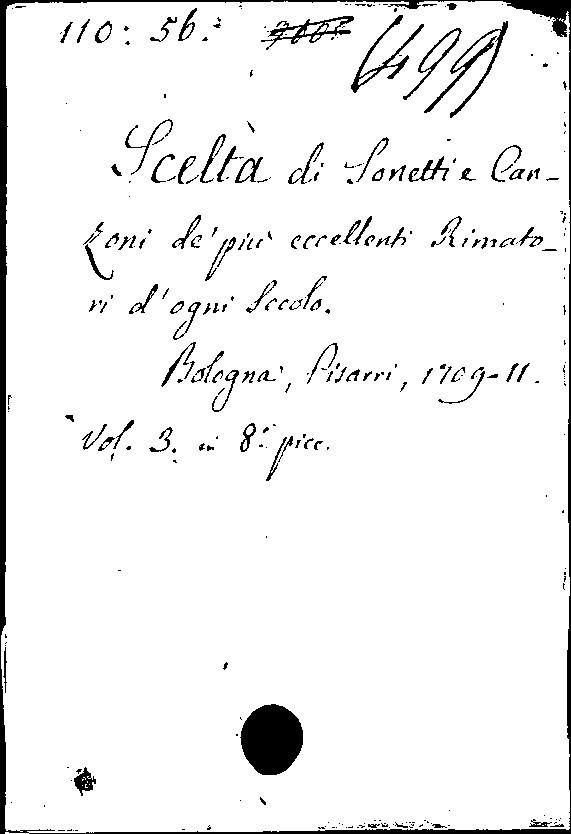 110: 56.
(499)
Scelta di Sonetti e Can-
zoni de' più eccellenti Rimato-
ri d'ogni Secolo.
Bologna, Pisarri, 1709-11.
Vol. 3. in 8.° picc.